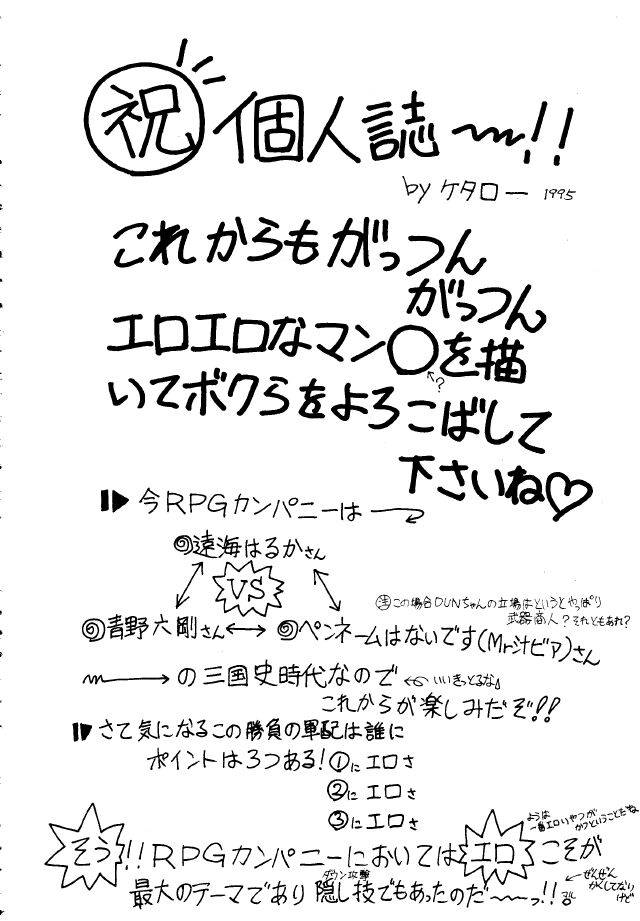 祝 個人誌〜!!
by ケタロー 1995
これからもがっつん
がっつん
エロエロなマン○を描
?
いてボクらをよろこばして
下さいね♡
今RPGカンパニーは
遠海はるかさん
VS
注この場合DUNちゃんの立場はというとやっぱり
武器商人?それともあれ?
青野六剛さん↔ペンネームはないです(Mr汁ビア)さん
の三国史時代なので ←いいきっとるな
これからが楽しみだぞ!!
さて気になるこの勝負の軍配は誰に
ポイントは3つある!①にエロさ
②にエロさ
③にエロさ
ようは
一番エロいやつが
かつということだね
そう!!RPGカンパニーにおいてはエロこそが
ダウン攻撃
最大のテーマであり隠し技でもあったのだ〜っ!!
←ぜんぜん
かくしてない
けど